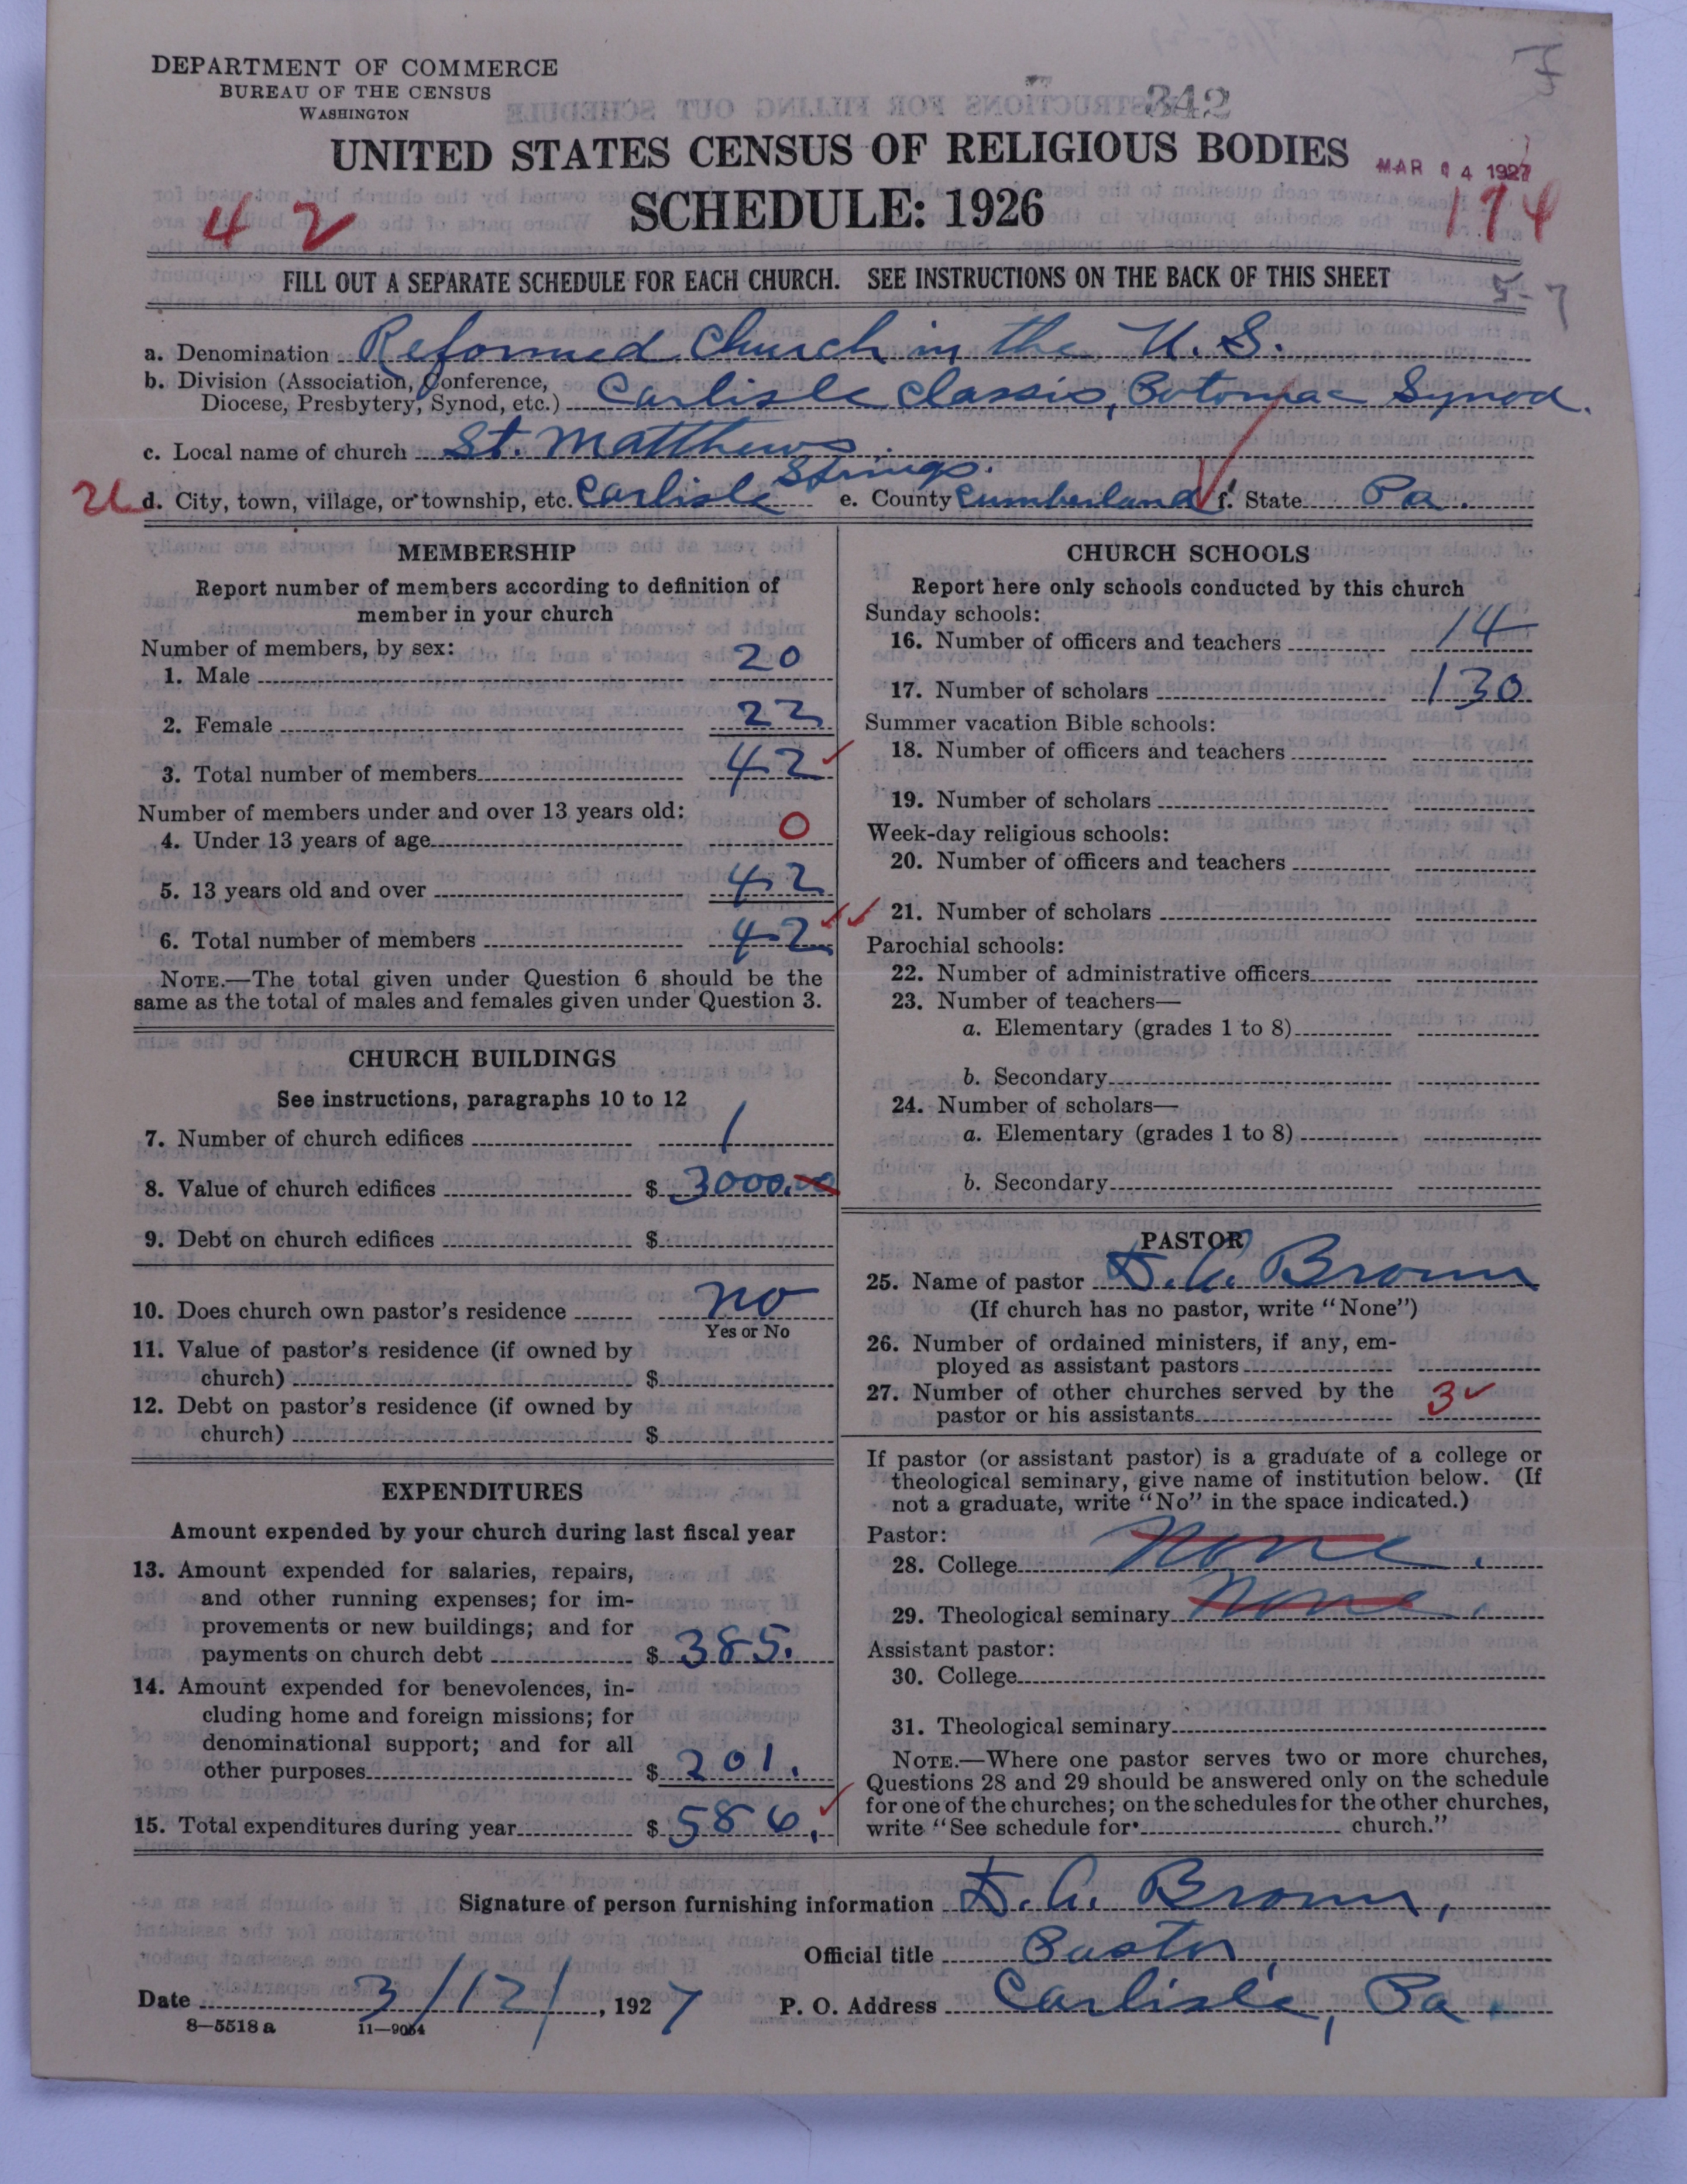 DEPARTMENT OF COMMERCE
BUREAU OF THE CENSUS
WASHINGTON
342
UNITED STATES CENSUS OF RELIGIOUS BODIES
MAR 14 1927
SCHEDULE: 1926
42
174
FILL OUT A SEPARATE SCHEDULE FOR EACH CHURCH. SEE INSTRUCTIONS ON THE BACK OF THIS SHEET
5-7
a. Denomination Reformed Church in the U.S.
b. Division (Association, Conference, Diocese, Presbytery, Synod, etc.) Carlisle Classis, Potomac Synod.
c. Local name of church St. Matthews
d. City, town, village, or township, etc. Carlisle Springs. e. County Cumberland f. State Pa.
MEMBERSHIP
Report number of members according to definition of
member in your church
Number of members, by sex:
1. Male 20
2. Female 22
3. Total number of members 42
Number of members under and over 13 years old:
4. Under 13 years of age 0
5. 13 years old and over 42
6. Total number of members 42
NOTE.—The total given under Question 6 should be the
same as the total of males and females given under Question 3.
CHURCH BUILDINGS
See instructions, paragraphs 10 to 12
7. Number of church edifices 1
8. Value of church edifices $ 3000.00
9. Debt on church edifices $
10. Does church own pastor's residence no
Yes or No
11. Value of pastor's residence (if owned by
church) $
12. Debt on pastor's residence (if owned by
church) $
EXPENDITURES
Amount expended by your church during last fiscal year
13. Amount expended for salaries, repairs,
and other running expenses; for im-
provements or new buildings; and for
payments on church debt $ 385.
14. Amount expended for benevolences, in-
cluding home and foreign missions; for
denominational support; and for all
other purposes $ 201.
15. Total expenditures during year $ 586.
CHURCH SCHOOLS
Report here only schools conducted by this church
Sunday schools:
16. Number of officers and teachers 14
17. Number of scholars 130
Summer vacation Bible schools:
18. Number of officers and teachers
19. Number of scholars
Week-day religious schools:
20. Number of officers and teachers
21. Number of scholars
Parochial schools:
22. Number of administrative officers
23. Number of teachers—
a. Elementary (grades 1 to 8)
b. Secondary
24. Number of scholars—
a. Elementary (grades 1 to 8)
b. Secondary
PASTOR
25. Name of pastor Brown
(If church has no pastor, write "None")
26. Number of ordained ministers, if any, em-
ployed as assistant pastors
27. Number of other churches served by the
pastor or his assistants 3
If pastor (or assistant pastor) is a graduate of a college or
theological seminary, give name of institution below. (If
not a graduate, write "No" in the space indicated.)
Pastor:
28. College None.
29. Theological seminary None.
Assistant pastor:
30. College
31. Theological seminary
NOTE.—Where one pastor serves two or more churches,
Questions 28 and 29 should be answered only on the schedule
for one of the churches; on the schedules for the other churches,
write "See schedule for church."
Signature of person furnishing information Brown,
Official title Pastor
Date 3/12/, 1927 P. O. Address Carlisle, Pa.
8—5518 a 11—9054